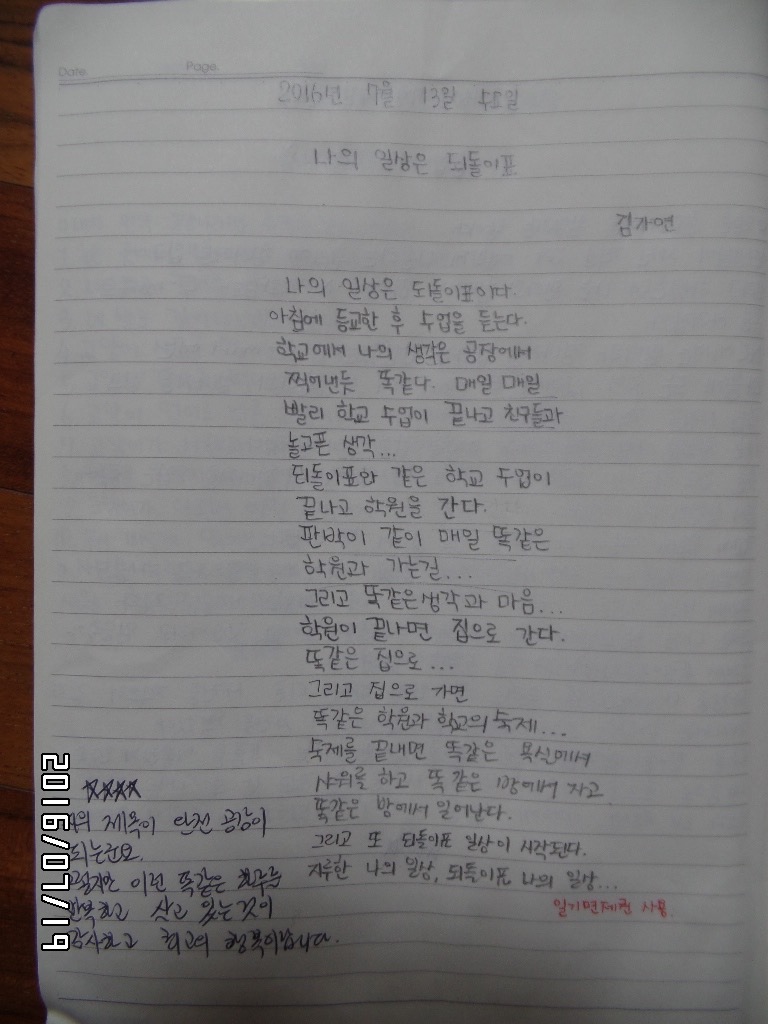 Date Page
2016년 7월 13일 수요일
나의 일상은 되돌이표
김자연
나의 일상은 되돌이표이다.
아침에 등교한 후 수업을 듣는다.
학교에서 나의 생각은 공장에서
찍어낸듯 똑같다. 매일 매일
빨리 학교 수업이 끝나고 친구들과
놀고픈 생각...
되돌이표와 같은 학교 수업이
끝나고 학원을 간다.
판박이 같이 매일 똑같은
학원과 가는길...
그리고 똑같은 생각과 마음...
학원이 끝나면 집으로 간다.
똑같은 집으로...
그리고 집으로 가면
똑같은 학원과 학교의 숙제...
숙제를 끝내면 똑같은 욕실에서
샤워를 하고 똑같은 방에서 자고
똑같은 방에서 일어난다.
그리고 또 되돌이표 일상이 시작된다.
지루한 나의 일상, 되돌이표 나의 일상...
일기면제권 사용.
제목이 완전 공감이
되는군요.
그렇지만 이런 똑같은 하루를
반복하고 살고 있는것이
감사하고 최고의 행복이랍니다.
2016/07/19